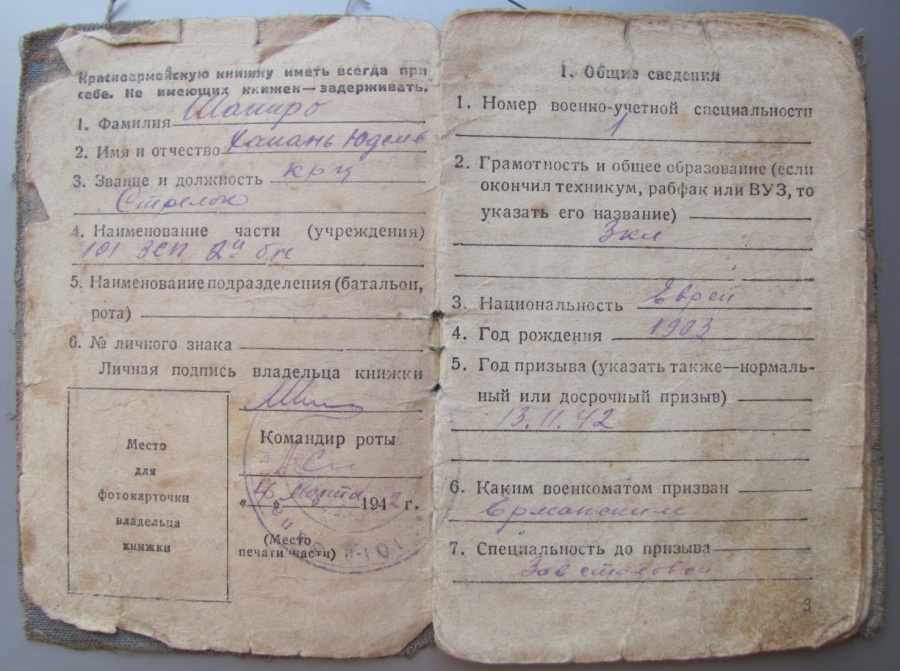 Красноармейскую книжку иметь всегда при
себе. Не имеющих книжек—задерживать.
1. Фамилия Шапиро
2. Имя и отчество
3. Звание и должность крц
Стрелок
4. Наименование части (учреждения)
101 ЗСП 2й
5. Наименование подразделения (батальон,
рота)
6. № личного знака
Личная подпись владельца книжки
Место
для
фотокарточки
владельца
книжки
Командир роты
« » марта 1942 г.
(Место
печати части)
I. Общие сведения
1. Номер военно-учетной специальности
1
2. Грамотность и общее образование (если
окончил техникум, рабфак или ВУЗ, то
указать его название)
3кл
3. Национальность Еврей
4. Год рождения 1903
5. Год призыва (указать также—нормаль-
ный или досрочный призыв)
13.II.42
6. Каким военкоматом призван
Ерманским
7. Специальность до призыва
Зав столовой
3